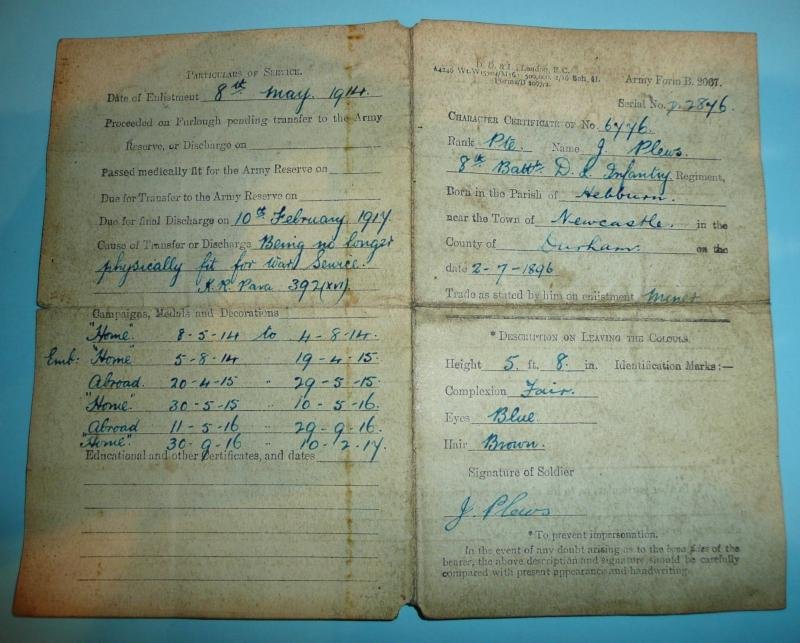 PARTICULARS OF SERVICE.
Date of Enlistment 8th May. 1914.
Proceeded on Furlough pending transfer to the Army
Reserve, or Discharge on
Passed medically fit for the Army Reserve on
Due for Transfer to the Army Reserve on
Due for final Discharge on 10th February 1917.
Cause of Transfer or Discharge Being no longer
physically fit for War Service.
K.R. Para 392 (xvi)
Campaigns, Medals and Decorations
"Home" 8-5-14 to 4-8-14.
Emb: "Home" 5-8-14 " 19-4-15.
Abroad. 20-4-15 " 29-5-15.
"Home" 30-5-15 " 10-5-16.
Abroad 11-5-16 " 29-9-16.
"Home" 30-9-16 " 10-2-17.
Educational and other Certificates, and dates
London, E.C.
Army Form B. 2067.
Serial No. P. 2876.
CHARACTER CERTIFICATE OF No. 6776.
Rank Pte. Name J. Plews.
8th Battn. D. L. Infantry Regiment,
Born in the Parish of Hebburn.
near the Town of Newcastle. in the
County of Durham. on the
date 2-7-1896
Trade as stated by him on enlistment Miner
* DESCRIPTION ON LEAVING THE COLOURS.
Height 5 ft. 8 in. Identification Marks:—
Complexion Fair.
Eyes Blue.
Hair Brown.
Signature of Soldier
J. Plews
* To prevent impersonation.
In the event of any doubt arising as to the bona fides of the
bearer, the above description and signature should be carefully
compared with present appearance and handwriting.